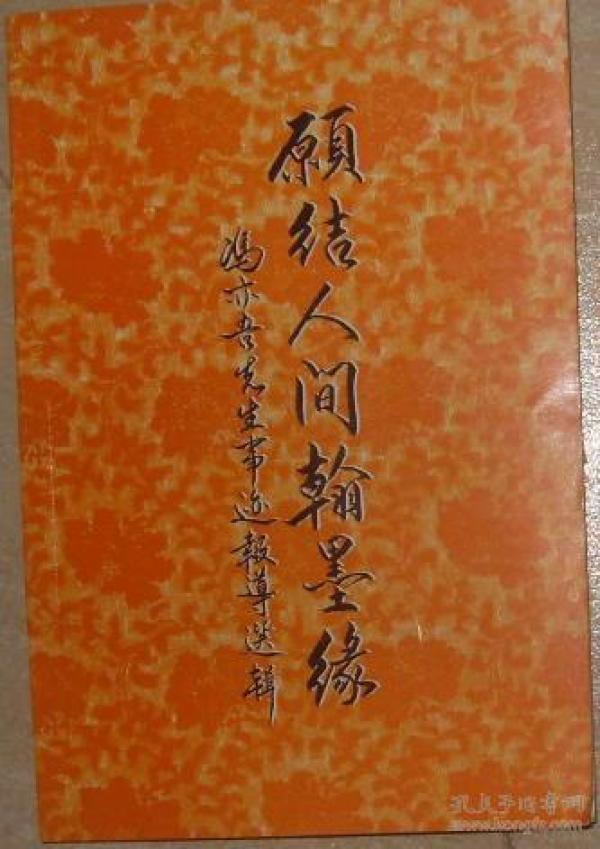 願结人间翰墨缘
冯亦吾先生事迹報导选辑
孔夫子旧书网
www.kongfz.com